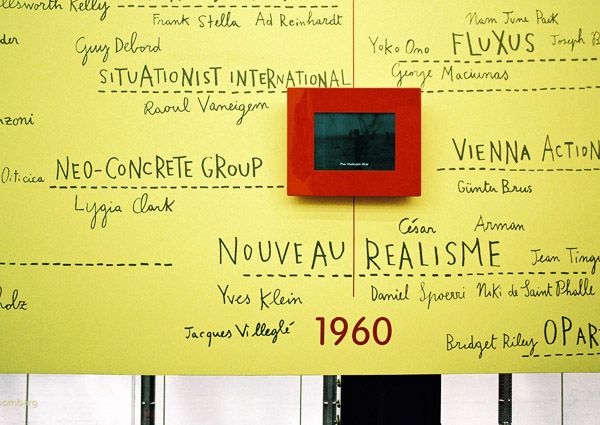 Ellsworth Kelly
Frank Stella Ad Reinhardt
Nam June Paik
Guy Debord
Yoko Ono FLUXUS Joseph B
SITUATIONIST INTERNATIONAL
George Maciunas
Raoul Vaneigem
The Vietnam War
Oiticica NEO-CONCRETE GROUP
VIENNA ACTION
Günter Brus
Lygia Clark
César Arman
NOUVEAU REALISME Jean Tingu
Yves Klein Daniel Spoerri Niki de Saint Phalle
Jacques Villeglé 1960
Bridget Riley OP ART